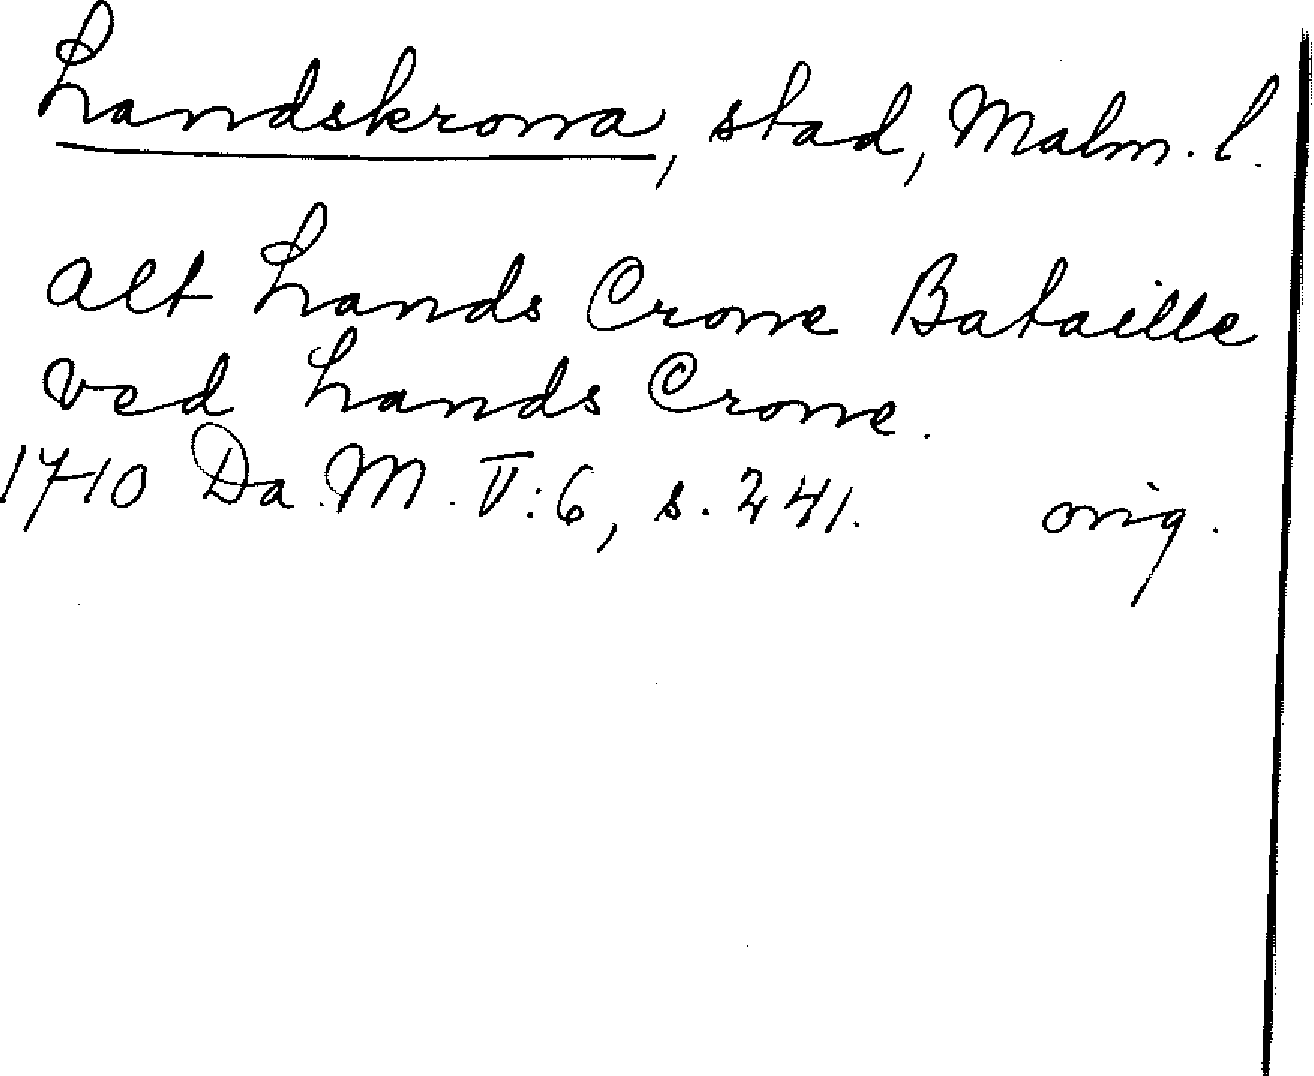 Landskrona, stad, Malm. l.
Alt Lands Crone Bataille
ved Lands Crone.
1710 Da. M. V:6, s. 241. orig.